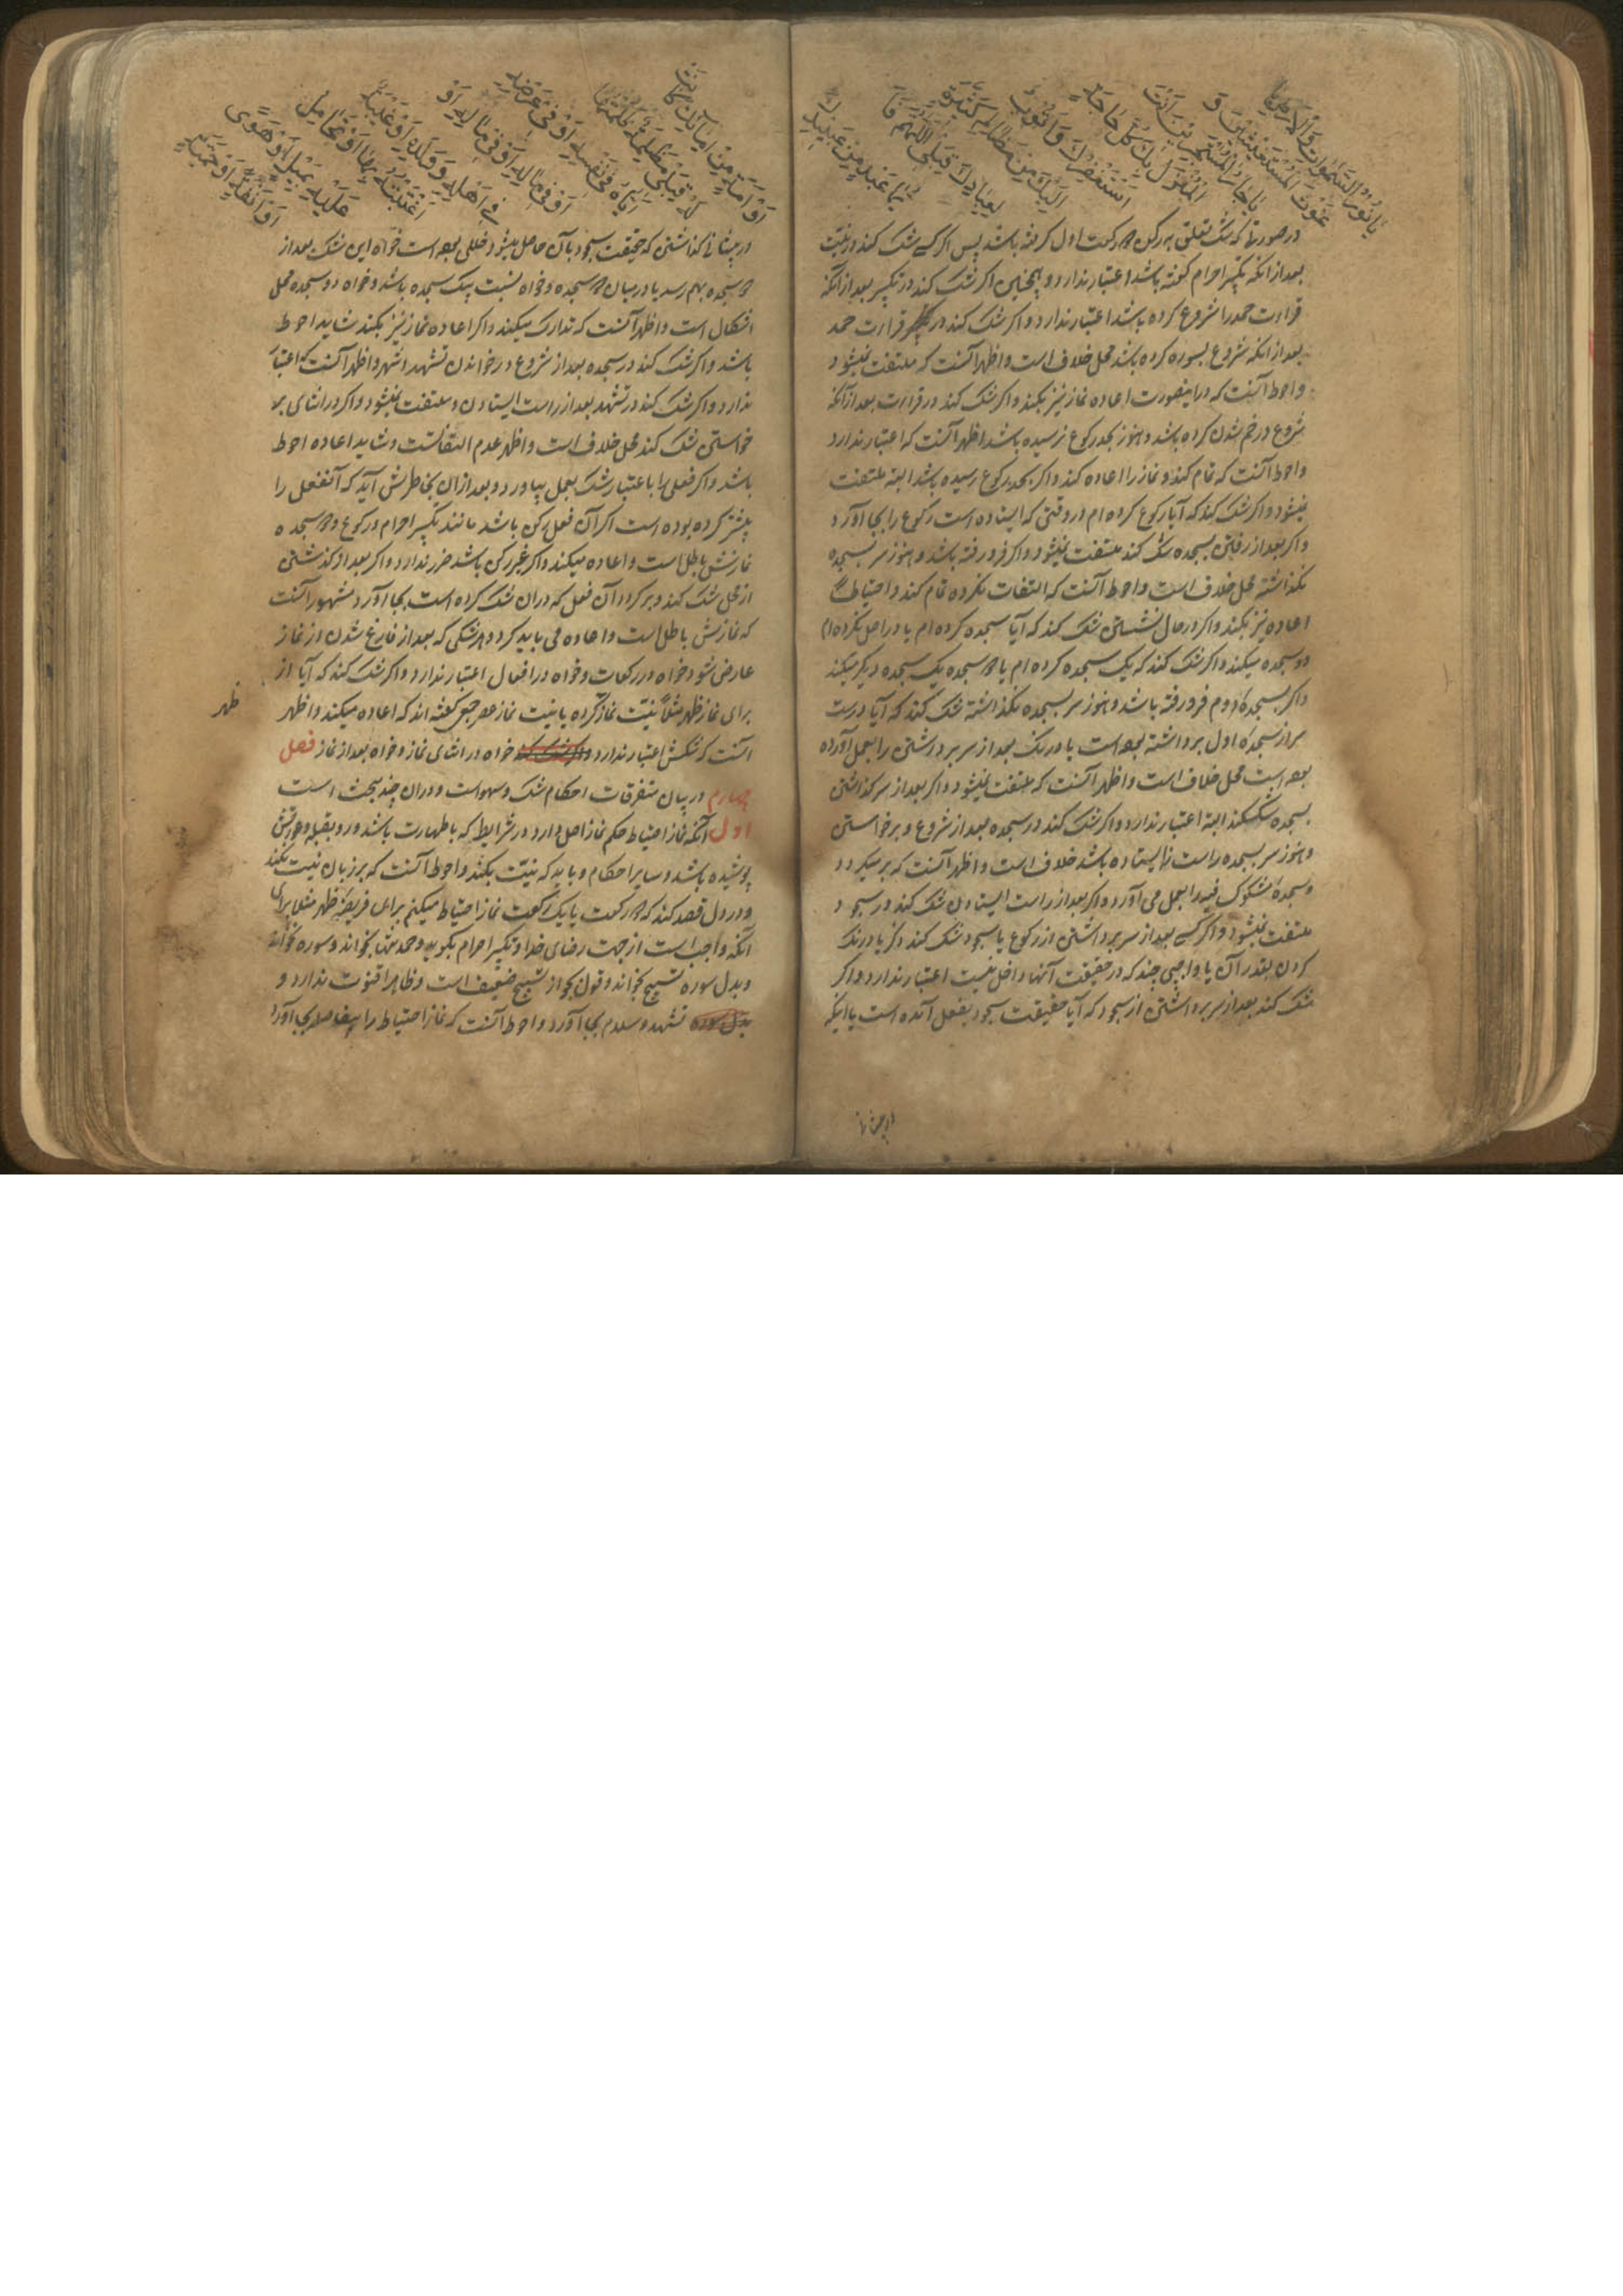 یا نور السموات والارض یا
غوث المستغیثین و
یا جار المستجیرین انت
المنزل بك كل حاجة
استغفرك واتوب
الیك من مظالم كثیرة
لعبادك قبلی اللهم فا
یما عبد من عبیدك
در صورتها که شک تعلق بهر رکن دو رکعت اول گرفته باشد پس اگر کسی شک کند در نیت
بعد از آنکه تکبیر احرام گفته باشد اعتبار ندارد و همچنین اگر شک کند در تکبیر بعد از آنکه
قراءت حمد را شروع کرده باشد اعتبار ندارد و اگر شک کند در قراءت حمد
بعد از آنکه شروع بسوره کرده باشد محل خلاف است و اظهر آنست که ملتفت نمیشود
و احوط آنست که در اینصورت اعاده نماز نیز بکند و اگر شک کند در قراءت بعد از آنکه
شروع در خم شدن کرده باشد و هنوز بحد رکوع نرسیده باشد اظهر آنست که اعتبار ندارد
و احوط آنست که تمام کند و نماز را اعاده کند و اگر بحد رکوع رسیده باشد البته ملتفت
نمیشود و اگر شک کند که آیا رکوع کرده ام در وقتی که ایستاده است رکوع را بجا آورد
و اگر بعد از رفتن بسجده شک کند ملتفت نمیشود و اگر فرو رفته باشد و هنوز سر بسجده
نگذاشته محل خلاف است و احوط آنست که التفات نکرده تمام کند و احتیاطاً
اعاده نیز بکند و اگر در حال نشستن شک کند که آیا سجده کرده ام یا در اصل نکرده ام
دو سجده میکند و اگر شک کند که یک سجده کرده ام یا دو سجده یک سجده دیگر میکند
و اگر بسجده دوم فرو رفته باشد و هنوز سر بسجده نگذاشته شک کند که آیا درست
سر از سجده اول برداشته بوده است یا درنک بعد از سر برداشتن را بعمل آورده
بوده است محل خلاف است و اظهر آنست که ملتفت نمیشود و اگر بعد از سر گذاشتن
بسجده شک کند البته اعتبار ندارد و اگر شک کند در سجده بعد از شروع و برخواستن
و هنوز سر بسجده راست نایستاده باشد خلاف است و اظهر آنست که بر میگردد
و سجده مشکوک فیه را بعمل می آورد و اگر بعد از راست ایستادن شک کند در سجود
ملتفت نمیشود و اگر کسی بعد از سر برداشتن از رکوع یا سجود شک کند در ذکر یا درنک
کردن بقدر آن یا واجبی چند که در حقیقت آنها داخل نیست اعتبار ندارد و اگر
شک کند بعد از سر برداشتن از سجود که آیا حقیقت سجود بفعل آمده است یا اینکه
او امة من امائك كانت
له قبلی مظلمة ظلمتها
ایاه فی نفسه او فی عرضه
او فی ماله او
فی اهله وولده او غیبة
اغتبته بها او تحامل
علیه بمیل او هوی
او انفة او حمیة
در پیشانی گذاشتن که حقیقت سجود بآن حاصل میشود خللی بوده است خواه این شک بعد از
دو سجده بهم رسد یا در میان دو سجده و خواه نسبت بیک سجده باشد و خواه دو سجده محل
اشکال است و اظهر آنست که تدارک میکند و اگر اعاده نماز نیز بکند شاید احوط
باشد و اگر شک کند در سجده بعد از شروع در خواندن تشهد اشهر و اظهر آنست که اعتبار
ندارد و اگر شک کند در تشهد بعد از راست ایستادن ملتفت نمیشود و اگر در اثنای بر
خواستن شک کند محل خلاف است و اظهر عدم التفاتست و شاید اعاده احوط
باشد و اگر فعلی را باعتبار شک بعمل بیاورد و بعد از آن بخاطرش آید که آنفعل را
پیشتر کرده بوده است اگر آن فعل رکن باشد مانند تکبیر احرام و رکوع و دو سجده
نمازش باطل است و اعاده میکند و اگر غیر رکن باشد ضرر ندارد و اگر بعد از گذشتن
از محل شک کند و برگردد آن فعل که در آن شک کرده است بجا آورد مشهور آنست
که نمازش باطل است و اعاده می باید کرد و هر شکی که بعد از فارغ شدن از نماز
عارض شود خواه در رکعات و خواه در افعال اعتبار ندارد و اگر شک کند که آیا از
برای نماز ظهر مثلاً نیت نماز کرده یا نیت نماز عصر جمعی گفته اند که اعاده میکند و اظهر
ظهر
آنست که شکش اعتبار ندارد خواه در اثنای نماز و خواه بعد از نماز فصل
چهارم در بیان متفرقات احکام شک و سهو است و در آن چند بحث است
اول آنکه نماز احتیاط حکم نماز اصل دارد در شرایط که با طهارت باشد و رو بقبله و عورتش
پوشیده باشد و سایر احکام و باید که نیت بکند و احوط آنست که بر زبان نیت نکند
و در دل قصد کند که دو رکعت یا یک رکعت نماز احتیاط میکنم برای فریضه ظهر مثلا برای
آنکه واجب است از جهت رضای خدا و تکبیر احرام بگوید و حمد تنها بخواند و سوره نخواند
و بدل سوره تسبیح نخواند و قول بجواز تسبیح ضعیف است و ظاهرا قنوت ندارد و
بدل سوره تشهد و سلام بجا آورد و احوط آنست که نماز احتیاط را بیفاصله بجا آورد